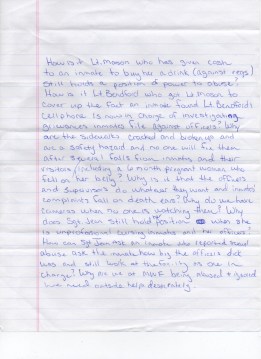 How is it Lt. Mason who has given cash
to an inmate to buy her a drink (against regs)
still holds a position of power to abuse?
How is it Lt Bradford who got Lt. Mason to
cover up the fact an inmate found Lt Bradford's
cellphone is now in charge of investigating
grievances inmates file against officers? Why
are the sidewalks cracked and broke up and
are a safety hazard and no one will fix them
after several falls from inmates and their
visitors (including a 6 month pregnant woman who
fell on her belly? Why is it that the officers
and supervisors do whatever they want and inmates'
complaints fall on death ears? Why do we have
cameras when no one is watching them? Why
does Sgt. Jenn still hold position when she
is unprofessional cursing inmates and her officers?
How can Sgt Jenn Ask an inmate who reported sexual
abuse ask the inmate how big the officers dick
was and still work at the facility as one in
charge? Why are we at being abused &
and need outside help desperately.